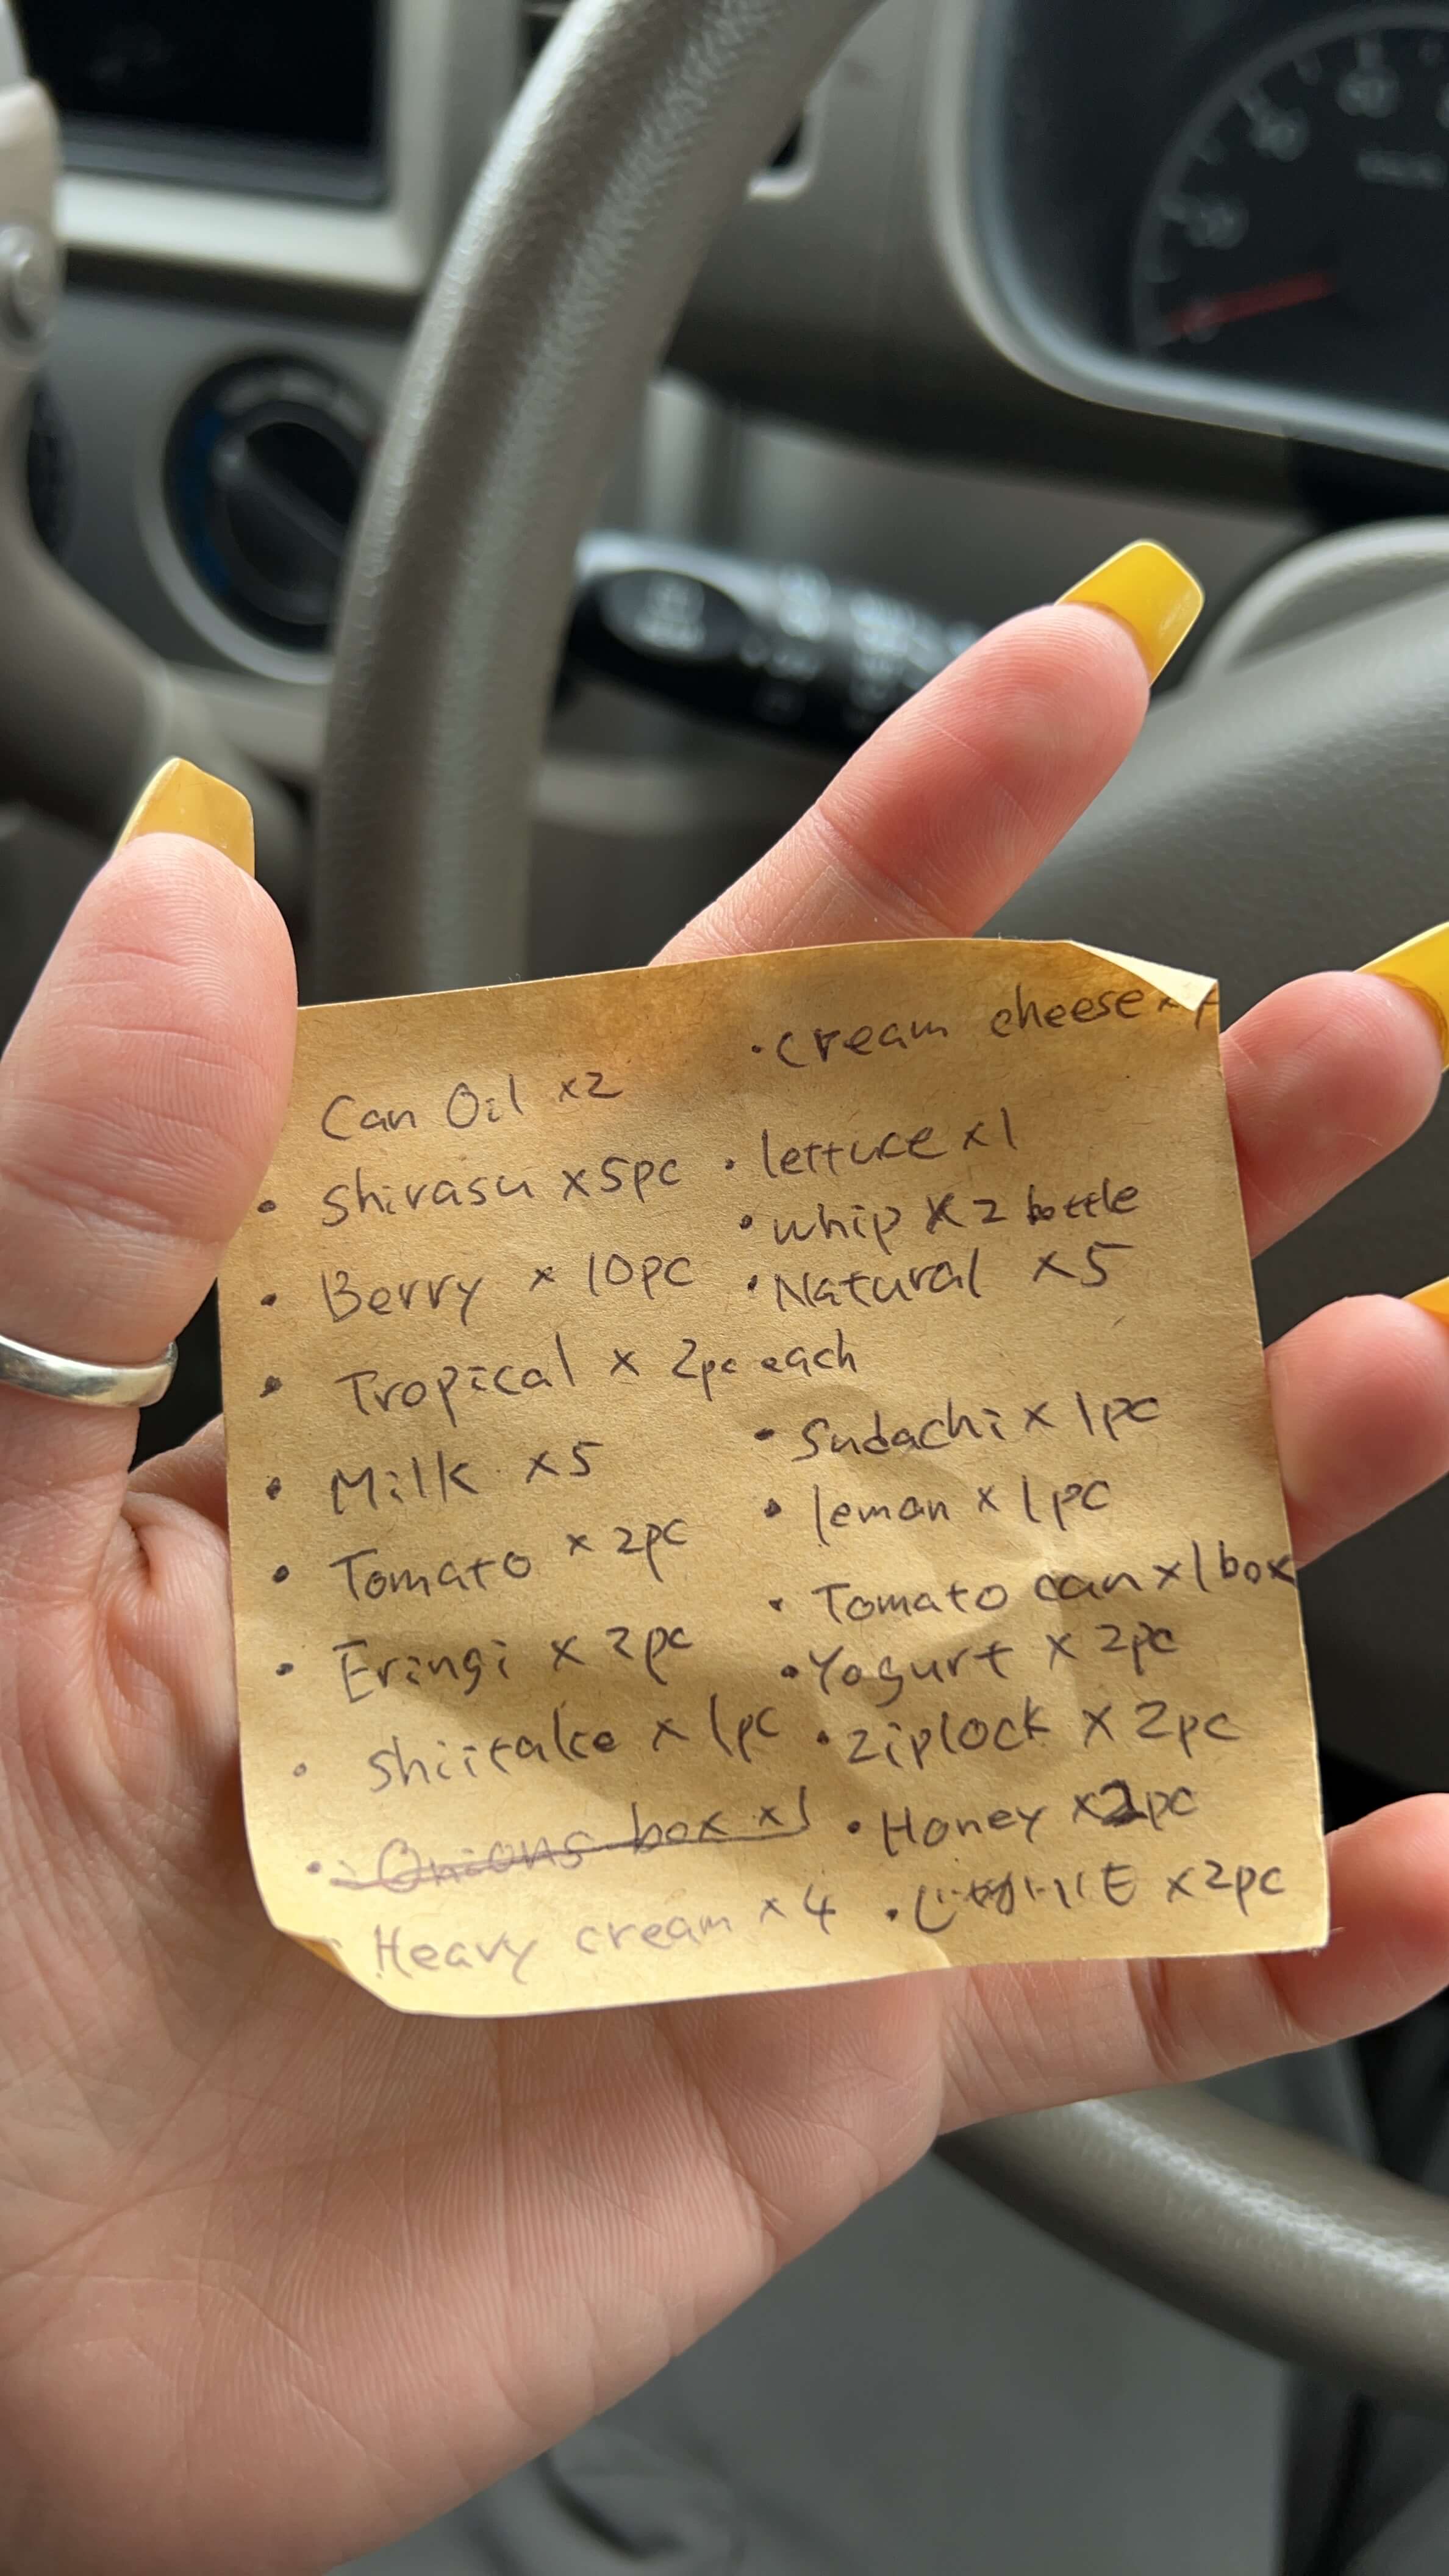 Can Oil x2
• Shirasu x5pc
• Berry x 10pc
• Tropical x 2pc each
• Milk x5
• Tomato x 2pc
• Eringi x 2pc
• Shiitake x 1pc
• Onions box x1
Heavy cream x 4
• cream cheese x
• lettuce x1
• whip x 2 bottle
• Natural x5
• Sudachi x 1pc
• leman x 1pc
• Tomato can x1box
• Yogurt x 2pc
• ziplock x 2pc
• Honey x2pc
• x2pc